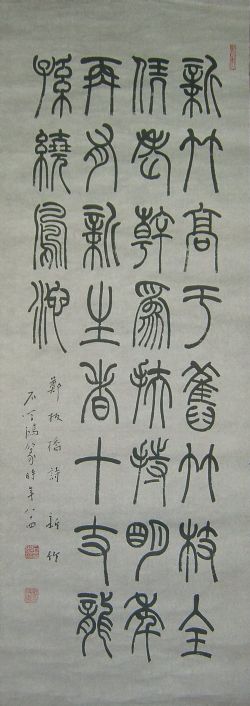 新竹高于舊竹枝全
凭老幹為扶持明年
再有新生者十丈龍
孫繞鳳池
鄭板橋詩 新竹
篆時年八四